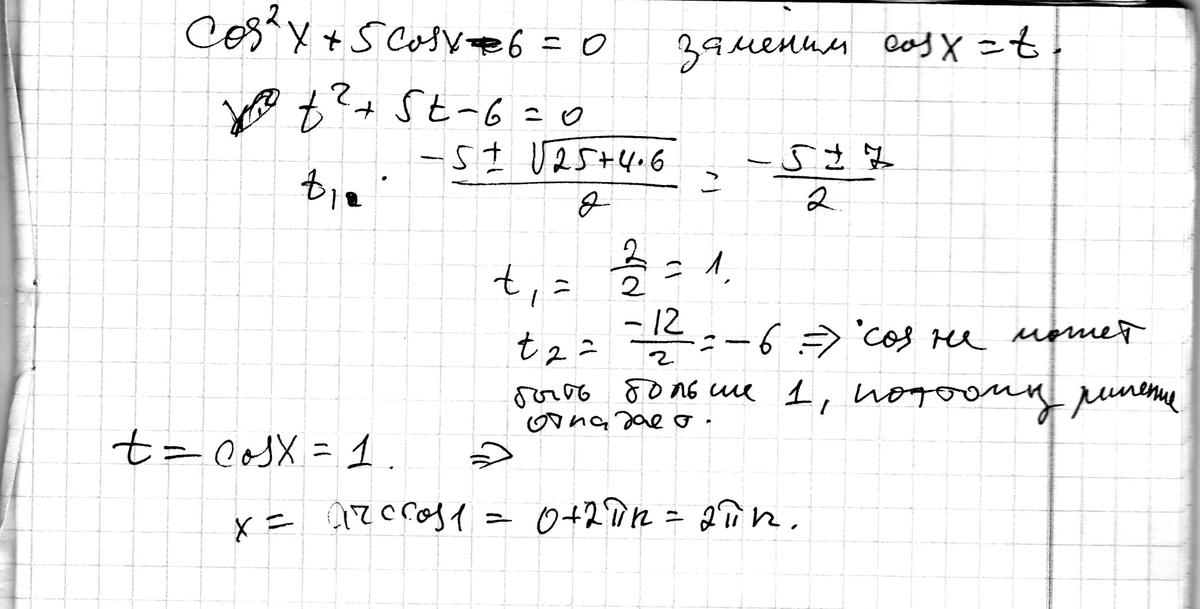 cos²x + 5cosx - 6 = 0 заменим cosx = t.
t² + 5t - 6 = 0
t₁₂ = (-5 ± √(25+4·6))/2 = (-5 ± 7)/2
t₁ = 2/2 = 1.
t₂ = -12/2 = -6 ⇒ cos не может
быть больше 1, поэтому решение
отпадает.
t = cosx = 1. ⇒
x = arccos1 = 0+2πn = 2πn.